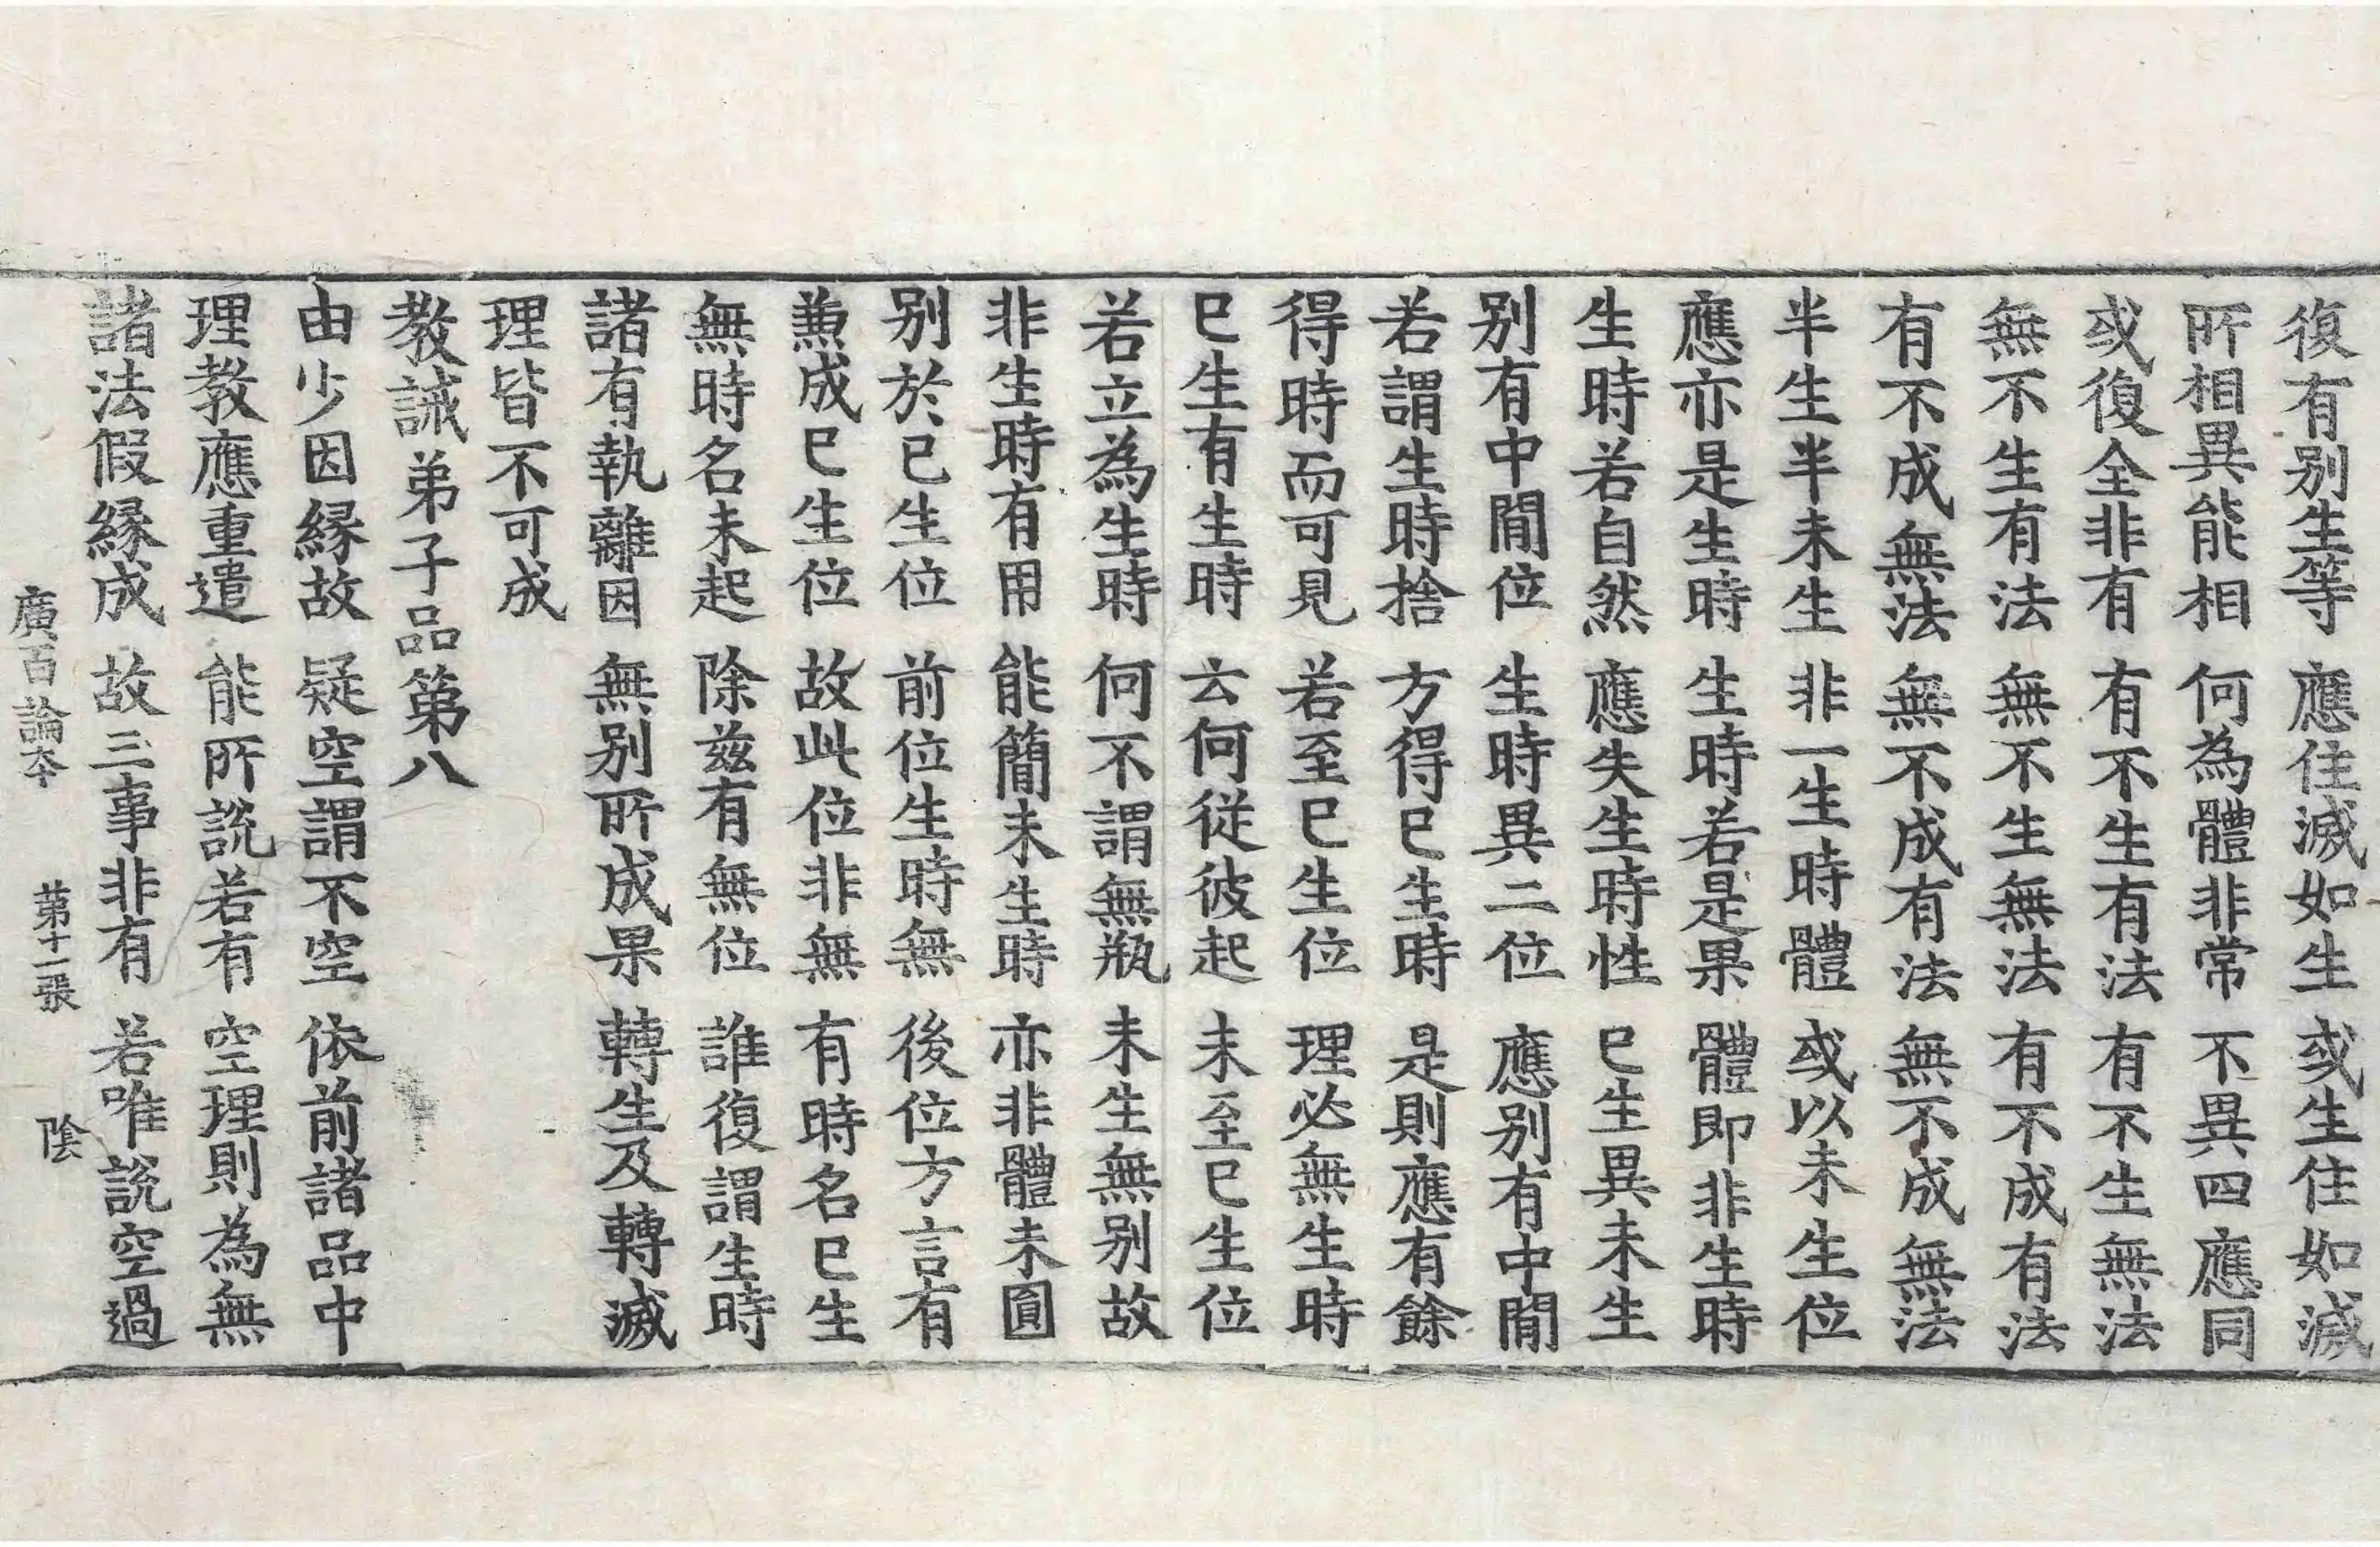 復有別生等　應住滅如生　或生住如滅
所相異能相　何為體非常　不異四應同
或復全非有　有不生有法　有不生無法
無不生有法　無不生無法　有不成有法
有不成無法　無不成有法　無不成無法
半生半未生　非一生時體　或以未生位
應亦是生時　生時若是果　體即非生時
生時若自然　應失生時性　已生異未生
別有中間位　生時異二位　應別有中間
若謂生時捨　方得已生時　是則應有餘
得時而可見　若至已生位　理必無生時
已生有生時　云何從彼起　未至已生位
若立為生時　何不謂無瓶　未生無別故
非生時有用　能簡未生時　亦非體未圓
別於已生位　前位生時無　後位方言有
兼成已生位　故此位非無　有時名已生
無時名未起　除茲有無位　誰復謂生時
諸有執離因　無別所成果　轉生及轉滅
理皆不可成
教誡弟子品第八
由少因緣故　疑空謂不空　依前諸品中
理教應重遣　能所說若有　空理則為無
諸法假緣成　故三事非有　若唯說空過
廣百論本　第十一張　陰